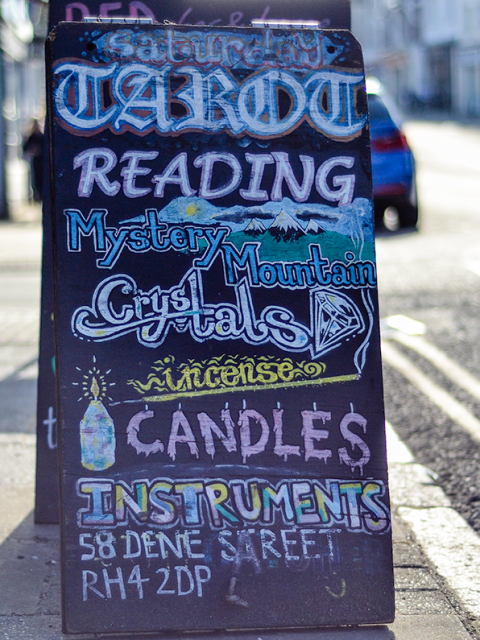 Saturday
TAROT
READING
Mystery
Mountain
Crystals
incense
CANDLES
INSTRUMENTS
58 DENE STREET
RH4 2DP